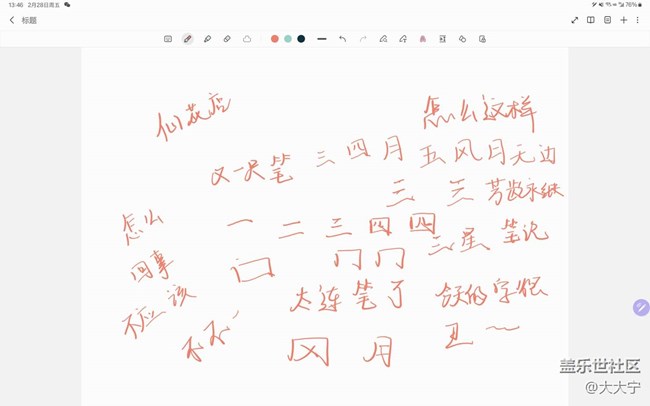 13:46 2月28日周五
76%
标题
怎么这样
又一只笔 三四月 五风月无边
三 三
怎么 一二三四四 三星 笔记
回事 口 门门
不应该 太连笔了 今天的字很
不不一 丑~
风 月
盖乐世社区
@大大宁